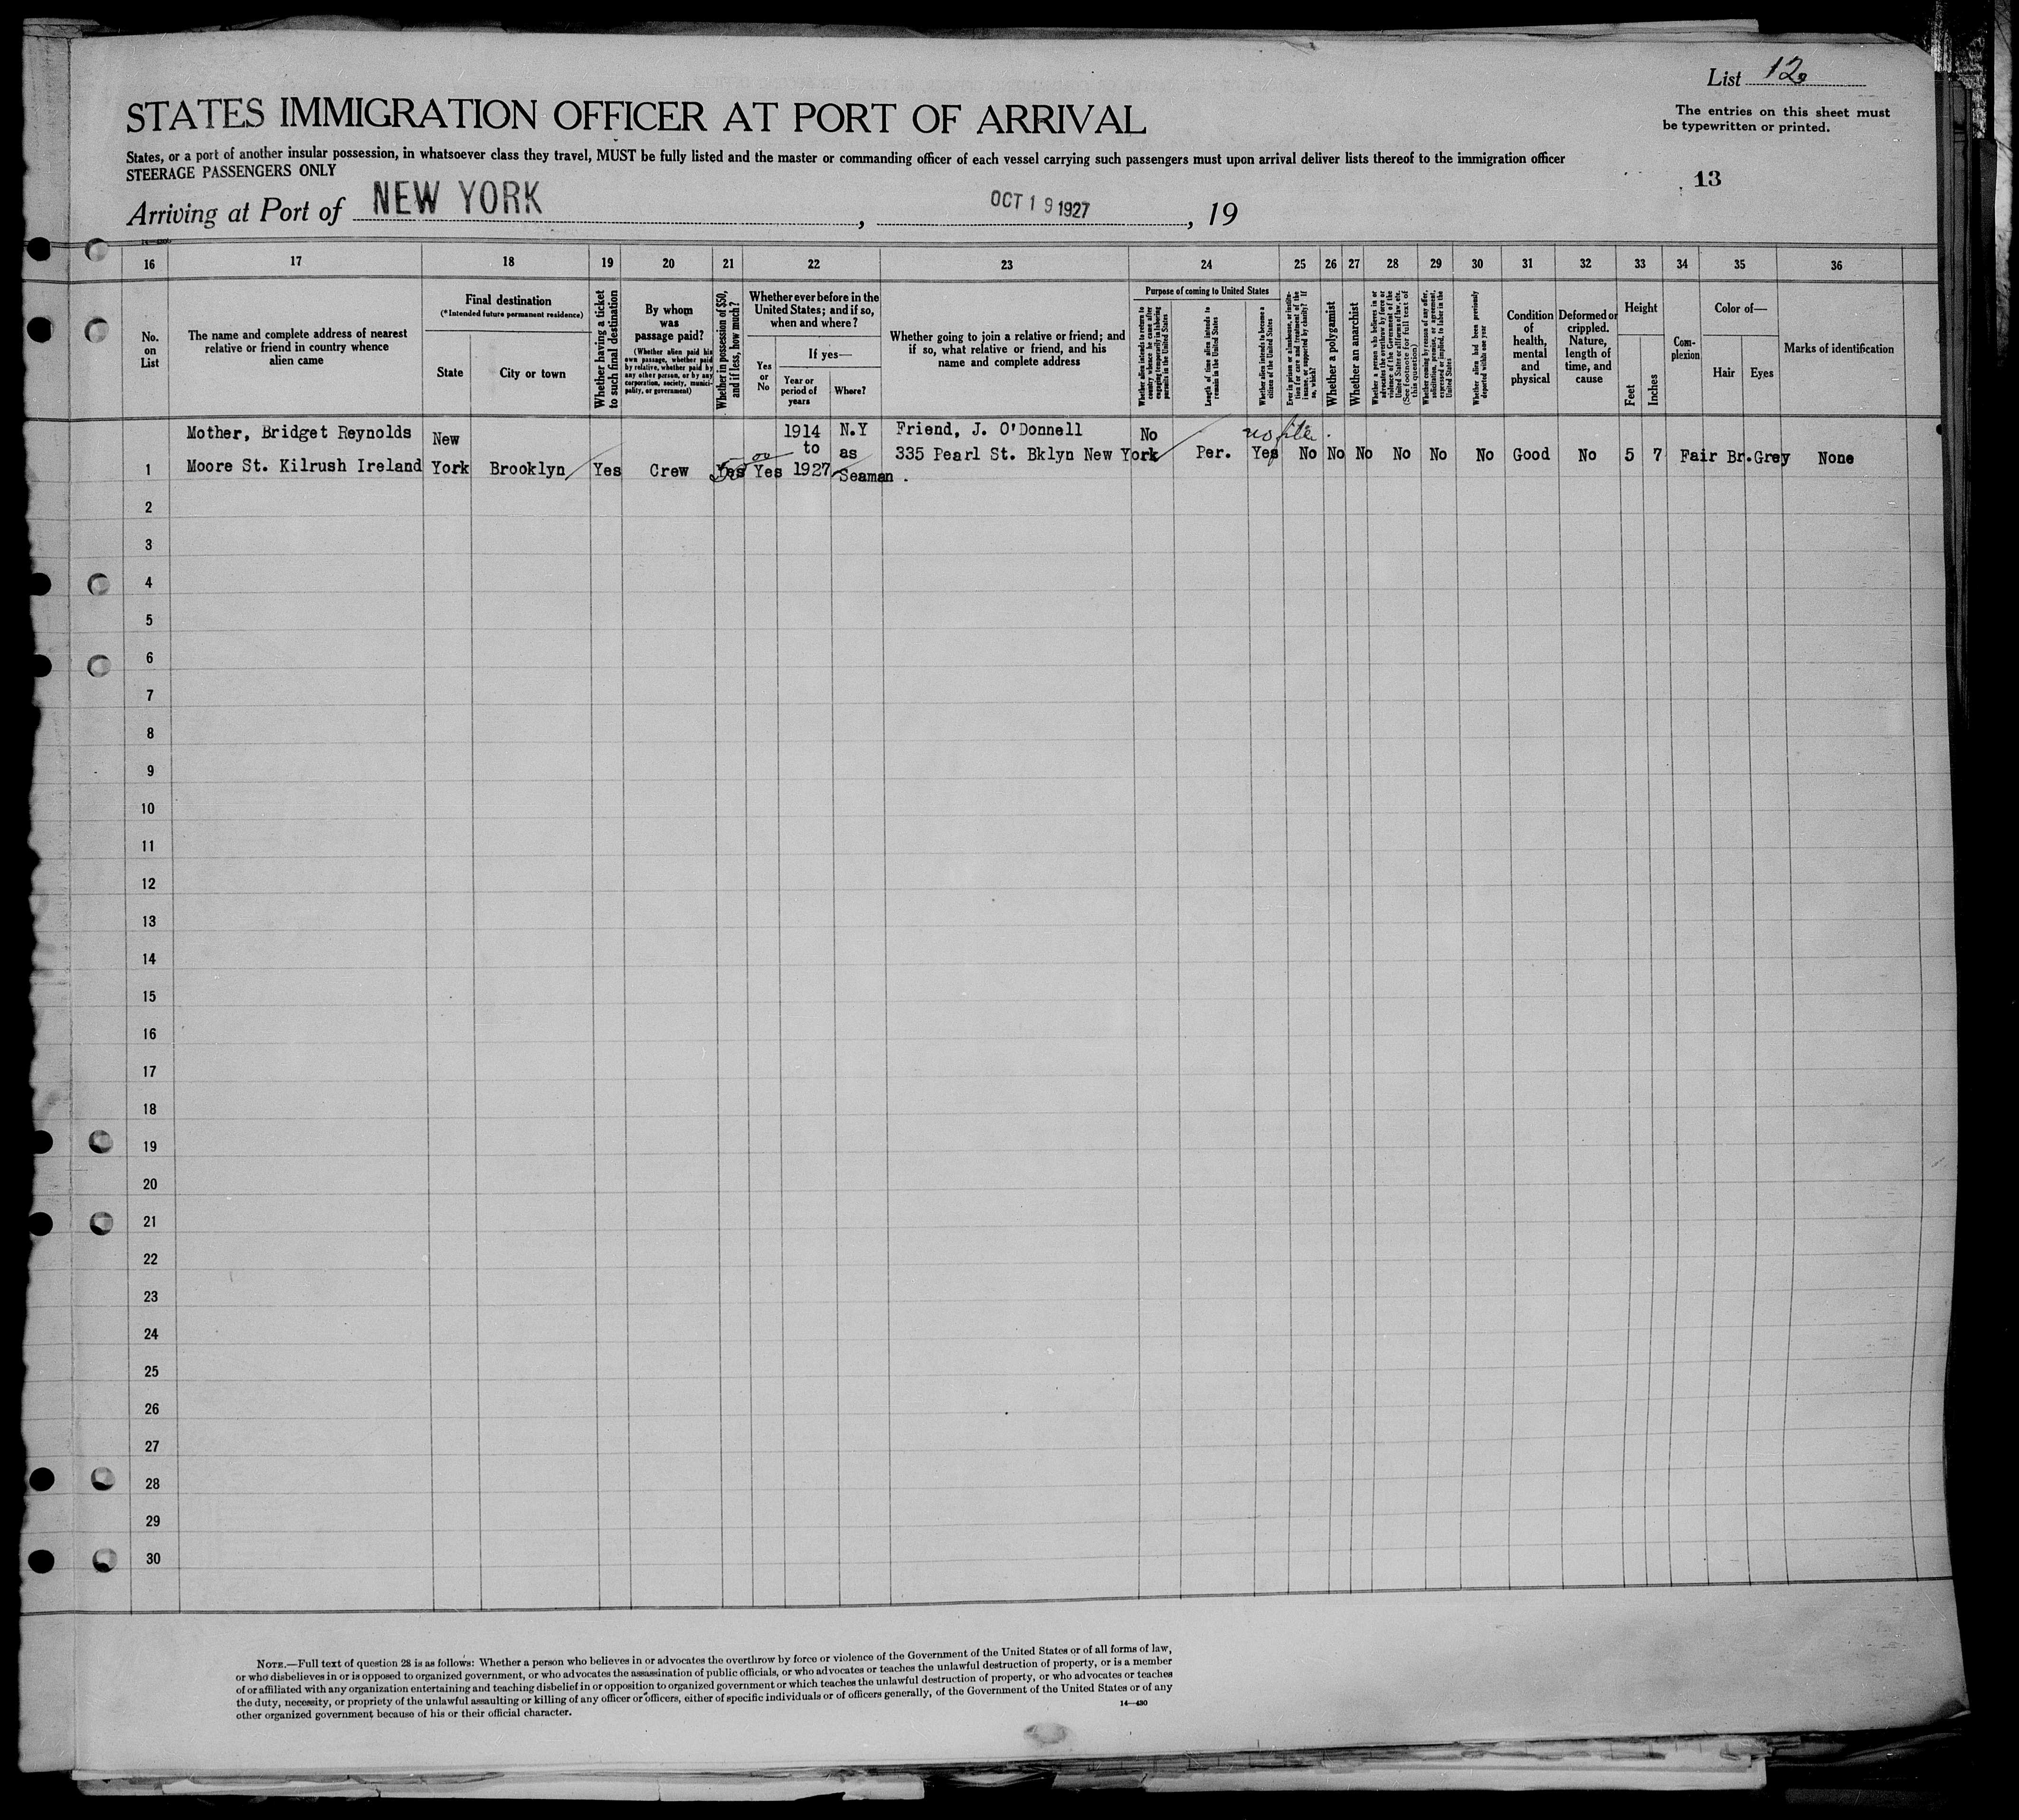 List 12
The entries on this sheet must
be typewritten or printed.
STATES IMMIGRATION OFFICER AT PORT OF ARRIVAL
States, or a port of another insular possession, in whatsoever class they travel, MUST be fully listed and the master or commanding officer of each vessel carrying such passengers must upon arrival deliver lists thereof to the immigration officer
STEERAGE PASSENGERS ONLY
13
Arriving at Port of NEW YORK, OCT 19 1927, 19
16 17 18 19 20 21 22 23 24 25 26 27 28 29 30 31 32 33 34 35 36
No.
on
List
The name and complete address of nearest
relative or friend in country whence
alien came
Final destination
(*Intended future permanent residence)
State
City or town
Whether having a ticket
to such final destination
By whom
was
passage paid?
(Whether alien paid his
own passage, whether paid
by relative, whether paid by
any other person, or by any
corporation, society, munici-
pality, or government)
Whether in possession of $50,
and if less, how much?
Whether ever before in the
United States; and if so,
when and where?
Yes
or
No
If yes—
Year or
period of
years
Where?
Whether going to join a relative or friend; and
if so, what relative or friend, and his
name and complete address
Purpose of coming to United States
Whether alien intends to return to
country whence he came after
engaging temporarily in laboring
pursuits in the United States
Length of time alien intends to
remain in the United States
Whether alien intends to become a
citizen of the United States
Ever in prison or almshouse, or institu-
tion for care and treatment of the
insane, or supported by charity? If
so, which?
Whether a polygamist
Whether an anarchist
Whether a person who believes in or
advocates the overthrow by force or
violence of the Government of the
United States or all forms of law, etc.
(See footnote for full text of
this question)
Whether coming by reason of any offer,
solicitation, promise, or agreement,
expressed or implied, to labor in the
United States
Whether alien had been previously
deported within one year
Condition
of
health,
mental
and
physical
Deformed or
crippled.
Nature,
length of
time, and
cause
Height
Feet
Inches
Com-
plexion
Color of—
Hair
Eyes
Marks of identification
Mother, Bridget Reynolds New 1914 N.Y Friend, J. O'Donnell No no file
to as 335 Pearl St. Bklyn New York Per. Yes No No No No No No Good No 5 7 Fair Br. Grey None
1 Moore St. Kilrush Ireland York Brooklyn Yes Crew Yes Yes 1927 Seaman.
2
3
4
5
6
7
8
9
10
11
12
13
14
15
16
17
18
19
20
21
22
23
24
25
26
27
28
29
30
NOTE.—Full text of question 28 is as follows: Whether a person who believes in or advocates the overthrow by force or violence of the Government of the United States or of all forms of law,
or who disbelieves in or is opposed to organized government, or who advocates the assassination of public officials, or who advocates or teaches the unlawful destruction of property, or is a member
of or affiliated with any organization entertaining and teaching disbelief in or opposition to organized government or which teaches the unlawful destruction of property, or who advocates or teaches
the duty, necessity, or propriety of the unlawful assaulting or killing of any officer or officers, either of specific individuals or of officers generally, of the Government of the United States or of any
other organized government because of his or their official character.
14—430